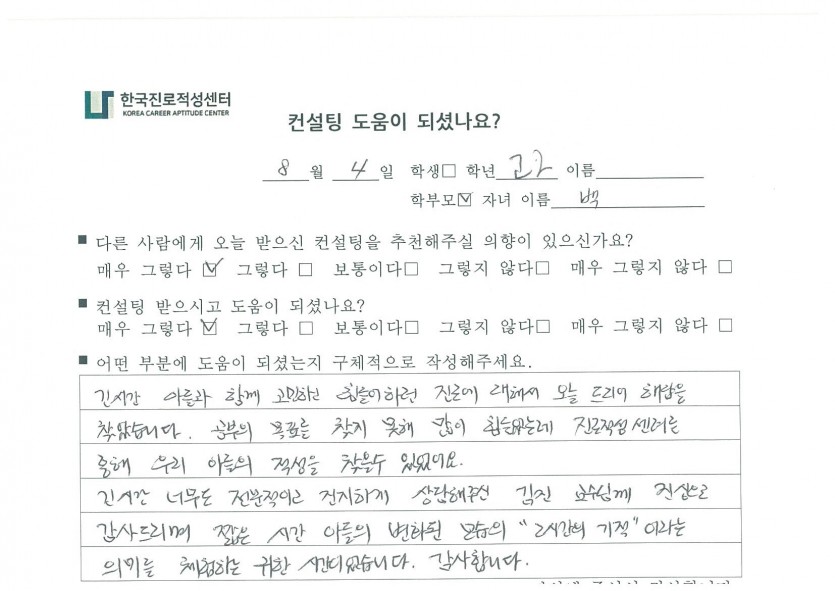 한국진로적성센터
KOREA CAREER APTITUDE CENTER
컨설팅 도움이 되셨나요?
8 월 4 일 학생□ 학년 고2 이름
학부모☑ 자녀 이름 백
■ 다른 사람에게 오늘 받으신 컨설팅을 추천해주실 의향이 있으신가요?
매우 그렇다 ☑ 그렇다 □ 보통이다□ 그렇지 않다□ 매우 그렇지 않다 □
■ 컨설팅 받으시고 도움이 되셨나요?
매우 그렇다 ☑ 그렇다 □ 보통이다□ 그렇지 않다□ 매우 그렇지 않다 □
■ 어떤 부분에 도움이 되셨는지 구체적으로 작성해주세요.
긴시간 아들과 함께 고민하고 힘들어하던 진로에 대해서 오늘 드디어 해답을
찾았습니다. 공부의 목표를 찾지 못해 많이 힘들었는데 진로적성센터를
통해 우리 아들의 적성을 찾을수 있었어요.
긴시간 너무도 전문적이고 진지하게 상담해주신 김진 교수님께 진심으로
감사드리며 짧은 시간 아들의 변화된 모습의 "2시간의 기적" 이라는
의미를 체험하는 귀한 시간이었습니다. 감사합니다.